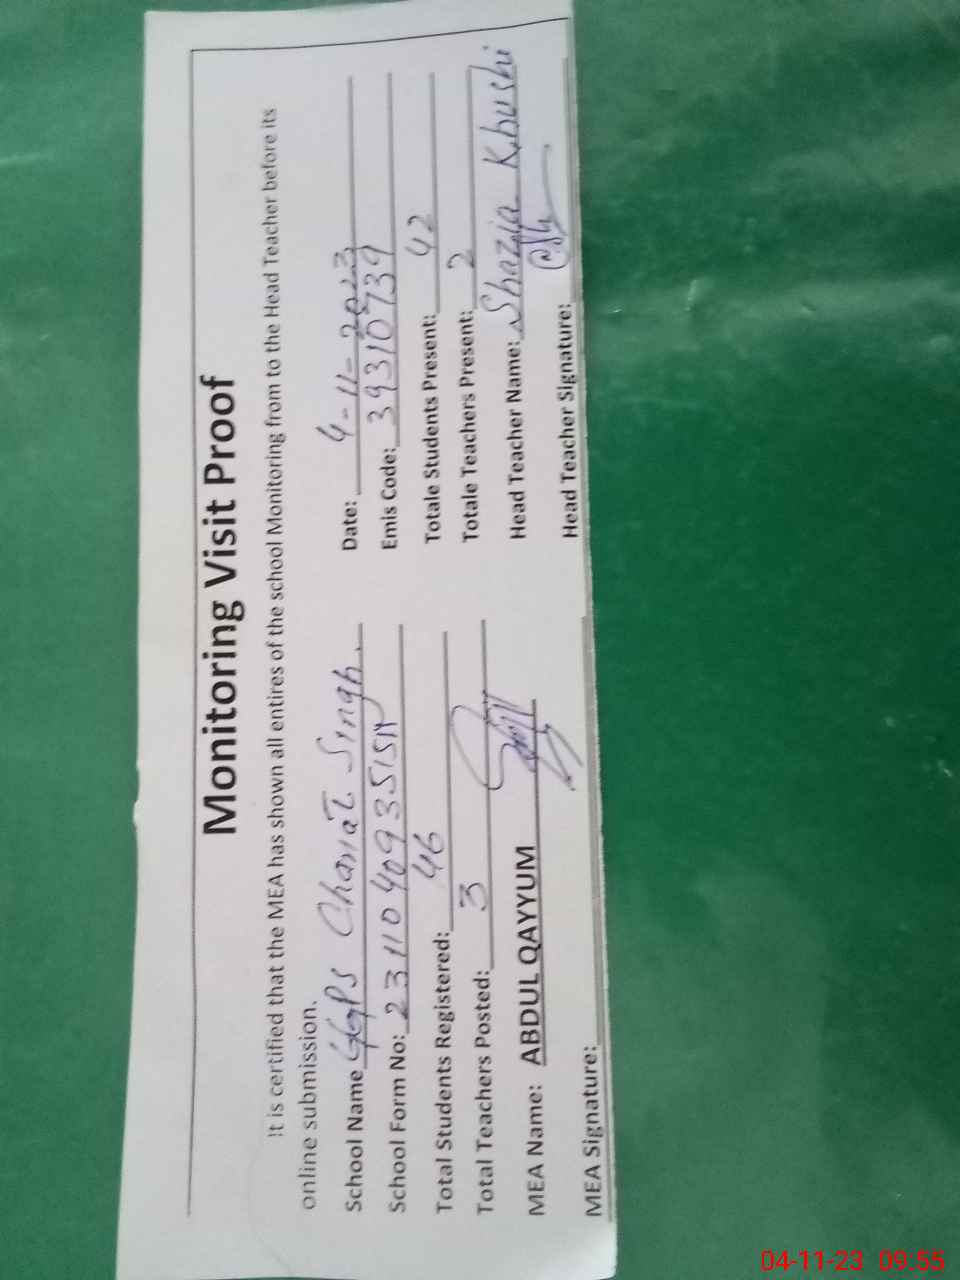 Monitoring Visit Proof
It is certified that the MEA has shown all entires of the school Monitoring from to the Head Teacher before its
online submission.
School Name GGPS Charat Singh.
Date: 4-11-2023
School Form No: 2311040935151
Emis Code: 39310739
Total Students Registered: 46
Totale Students Present: 42
Total Teachers Posted: 3
Totale Teachers Present: 2
MEA Name: ABDUL QAYYUM
Head Teacher Name: Shazia Khushi
MEA Signature:
Head Teacher Signature:
04-11-23 09:55